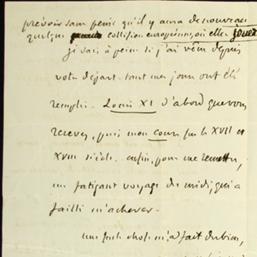 prévois sans peine qu'il y aura de nouveau
quelque collision européenne, où elle jouer
je sais à peine si j'ai vécu depuis
votre départ. tout mes jours ont été
remplis. Louis XI d'abord que vous
recevez, puis mon cours sur le XVII et
XVIII siècle. enfin, pour me remettre,
un fatigant voyage du midi, qui a
failli m'achever.
une seule chose m'a fait du bien,